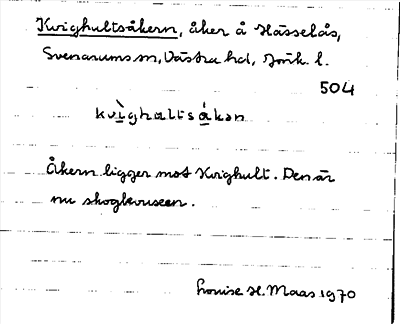 Kvighultsåkern, åker å Hässelås,
Svenarums sn, Västra hd, Jönk. l.
504
kvìghaltsákan
Åkern ligger mot Kvighult. Den är
nu skogbevuxen.
Louise H. Maas 1970